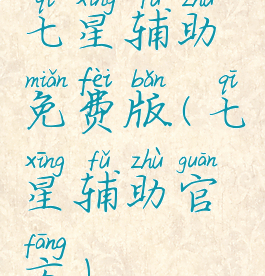 qī xīng fǔ zhù
七星辅助
miǎn fèi bǎn qī
免费版(七
xīng fǔ zhù guān
星辅助官
fāng
方)